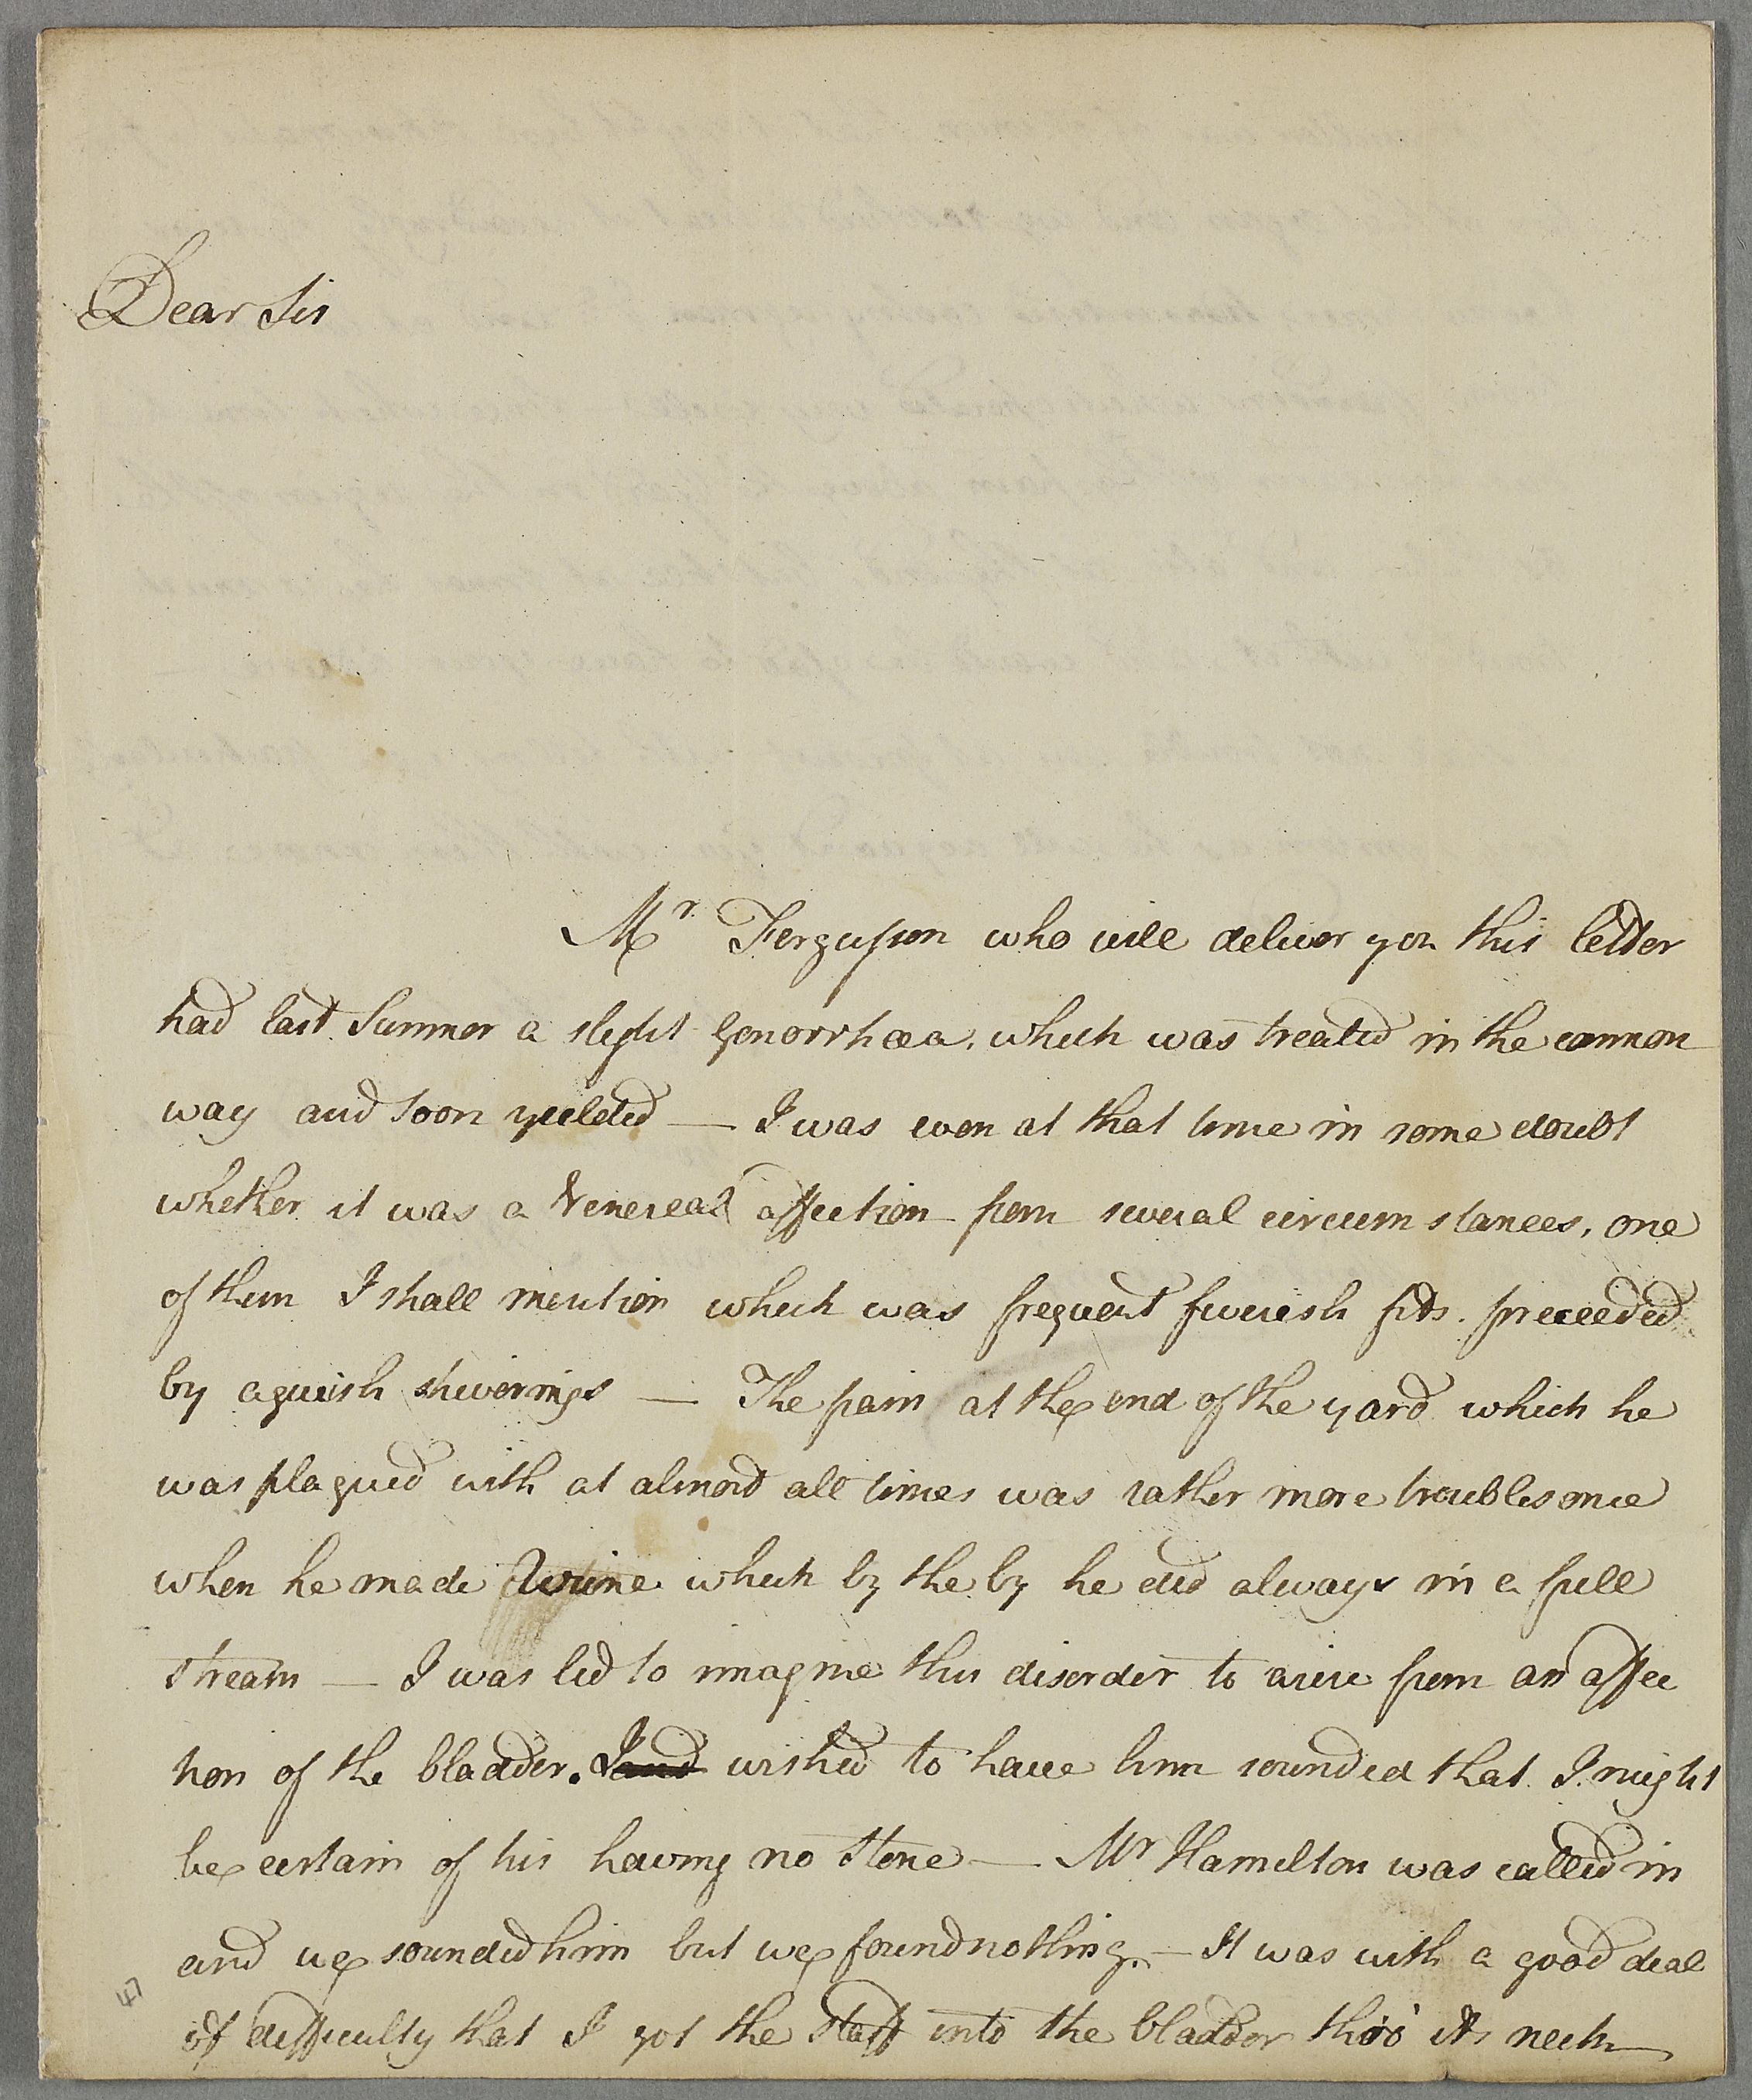 Dear Sir
Mr. Fergusson who will deliver you this letter
had last Summer a slight Gonorrhœa, which was treated in the common
way and soon yielded — I was even at that time in some doubt
whether it was a Venereal affection from several circumstances, one
of them I shall mention which was frequent feverish fits. preceeded
by aguish shiverings — The pain at the end of the yard which he
was plagued with at almost all times was rather more troublesome
when he made Urine which by the by he did always in a full
stream — I was led to imagine this disorder to arise from an affec
tion of the bladder. I and wished to have him sounded that I might
be certain of his having no Stone — Mr Hamilton was called in
and we sounded him but we found nothing. — It was with a good deal
of difficulty that I got the Staff into the bladder thro' its neck
47